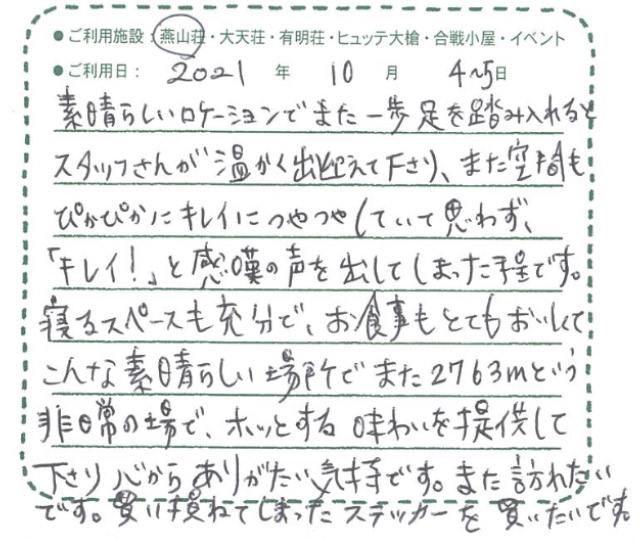 ● ご利用施設：燕山荘・大天荘・有明荘・ヒュッテ大槍・合戦小屋・イベント
● ご利用日： 2021 年 10 月 4~5日
素晴らしいロケーションでまた一歩足を踏み入れると
スタッフさんが温かく出迎えて下さり、また空間も
ぴかぴかにキレイにつやつやしていて思わず、
「キレイ!」と感嘆の声を出してしまった程です。
寝るスペースも充分で、お食事もとてもおいしくて
こんな素晴らしい場所でまた2763mという
非日常の場で、ホッとする味わいを提供して
下さり心からありがたい気持です。また訪れたい
です。買い損ねてしまったステッカーを買いたいです。